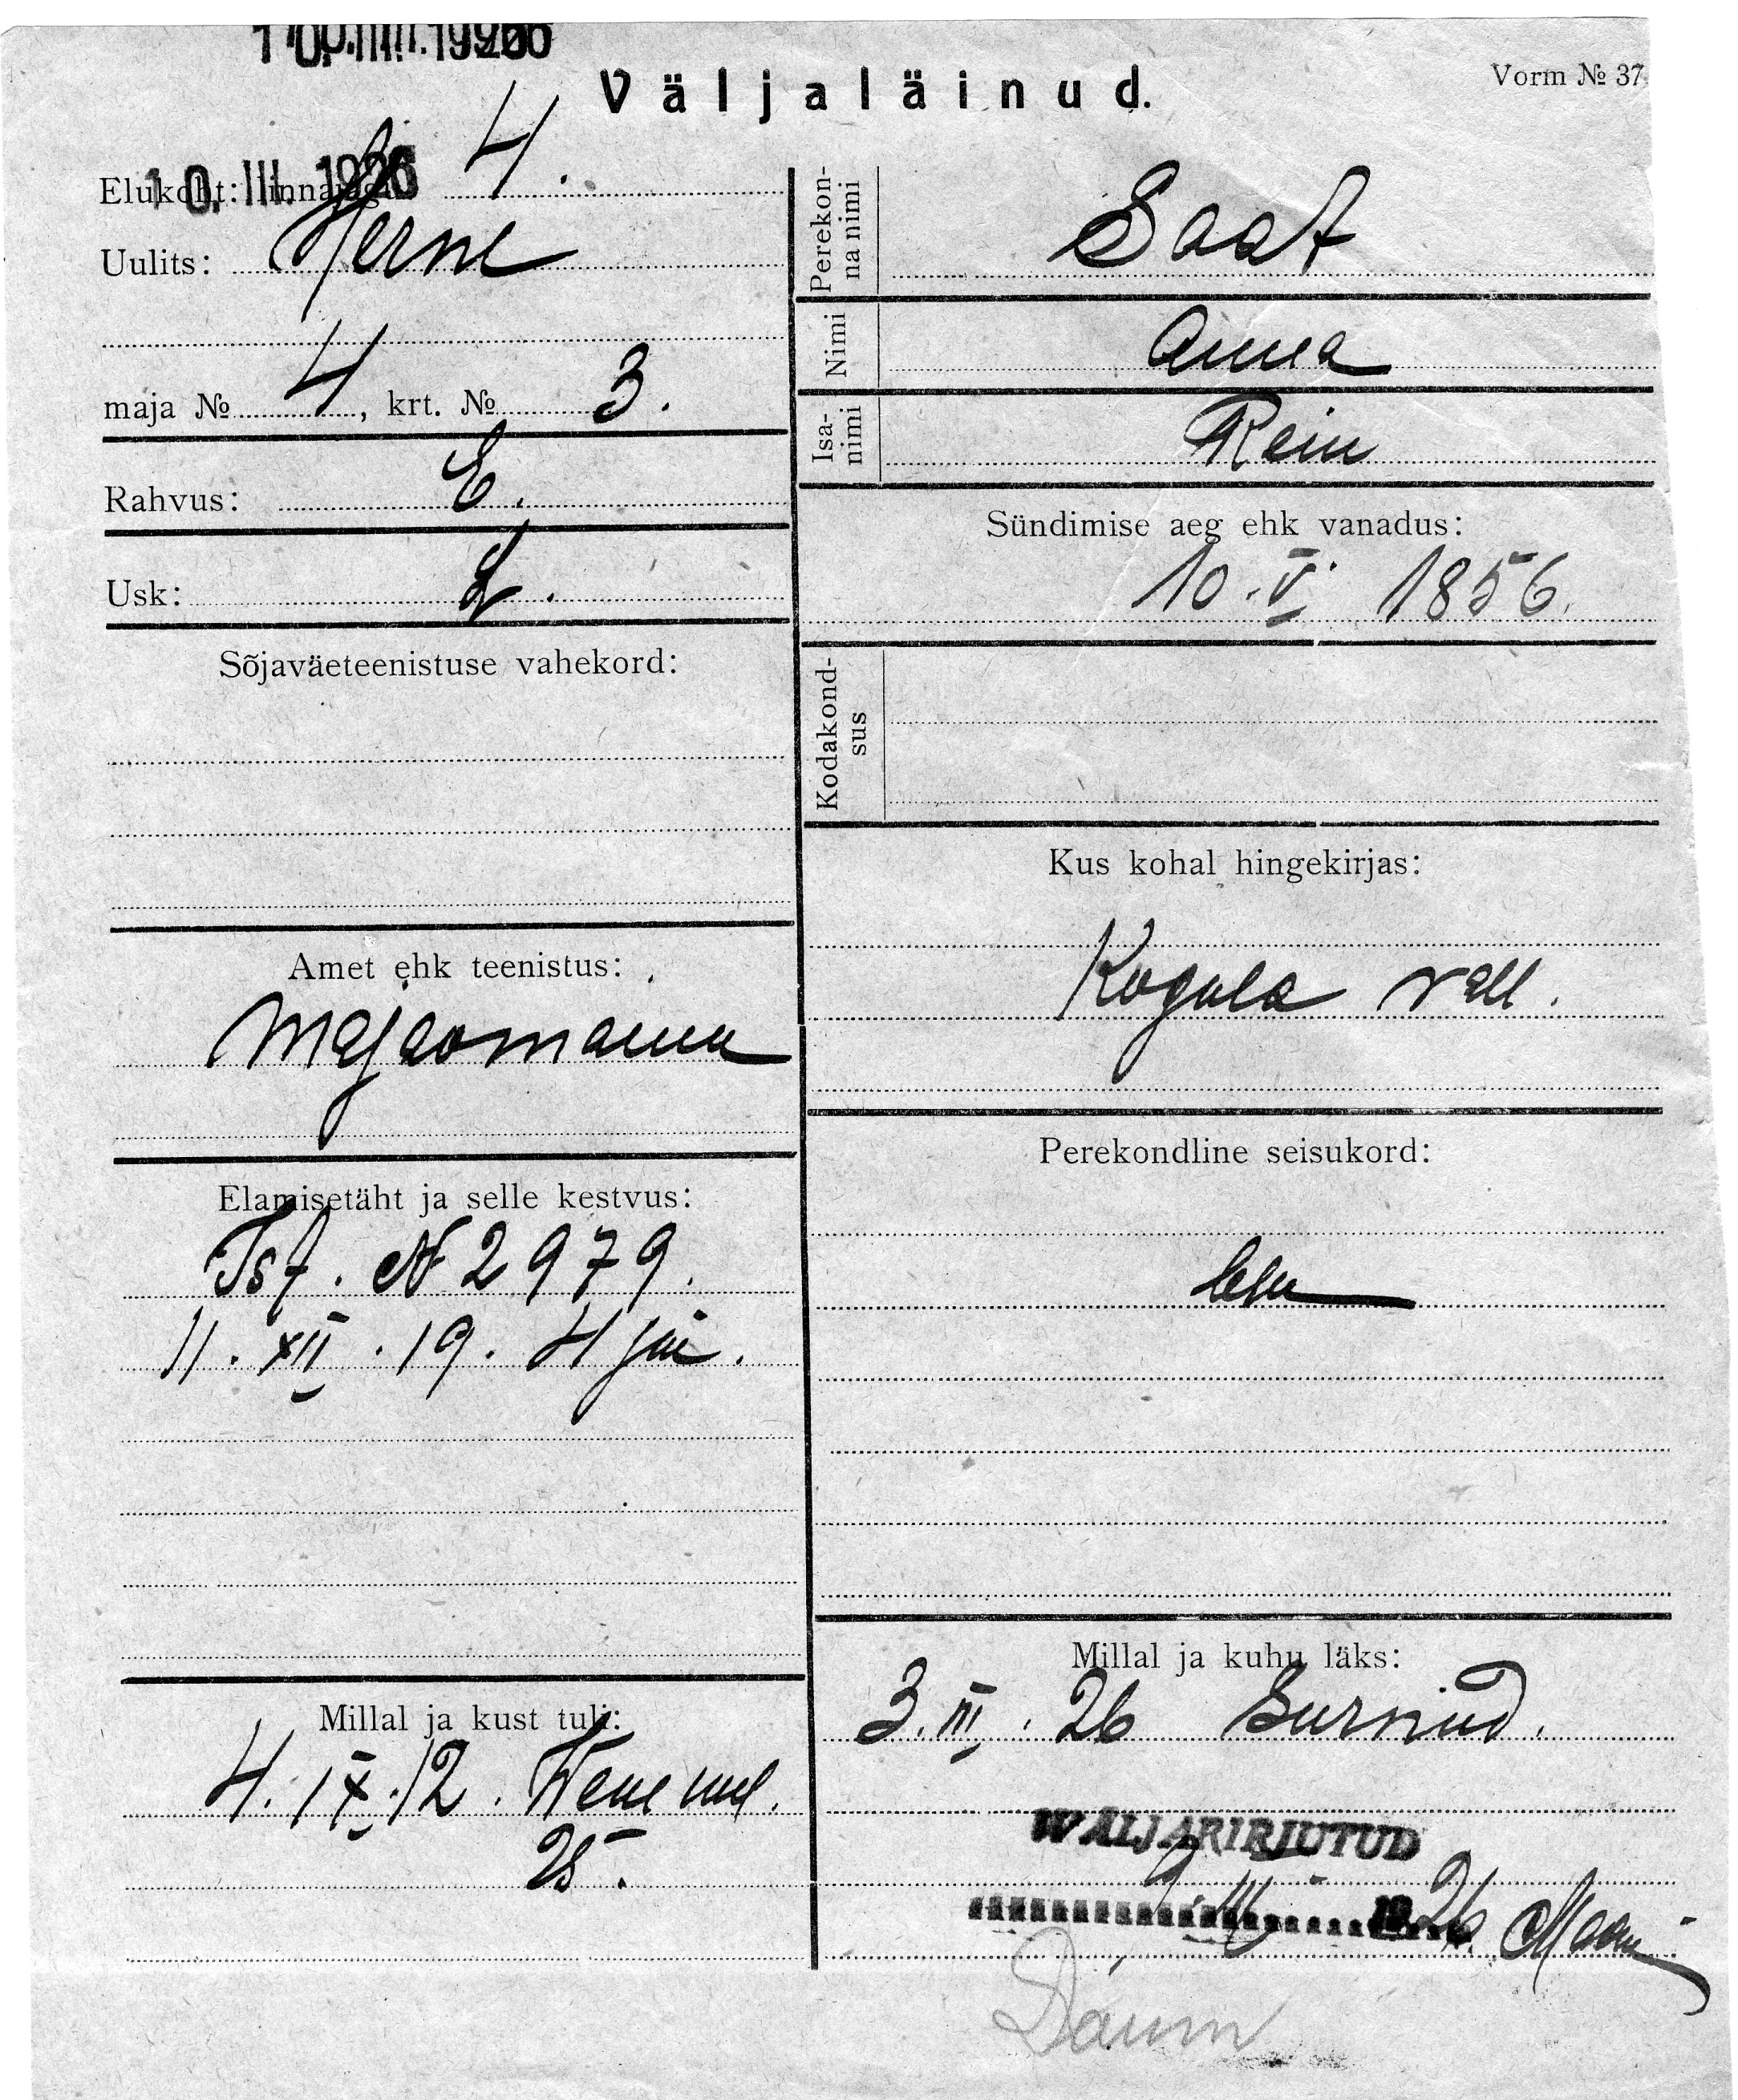 10. III. 1926
Väljaläinud.
Vorm № 37
10. III. 1926
Elukoht: linnajagu 4.
Uulits: Herne
maja № 4, krt. № 3.
Rahvus: E.
Usk: L.
Sõjaväeteenistuse vahekord:
Amet ehk teenistus:
Majaomanik
Elamisetäht ja selle kestvus:
Tsf. № 2979.
11. XII. 19. 4 jsk.
Millal ja kust tuli:
4. IX. 12. Wene uul.
25.
Perekonna nimi
Saat
Nimi
Anna
Isanimi
Rein
Sündimise aeg ehk vanadus:
10. V. 1856.
Kodakondsus
Kus kohal hingekirjas:
Kogula vall.
Perekondline seisukord:
lesk
Millal ja kuhu läks:
3. III. 26 Surnud.
WÄLJAKIRJUTUD
9. III 1926.